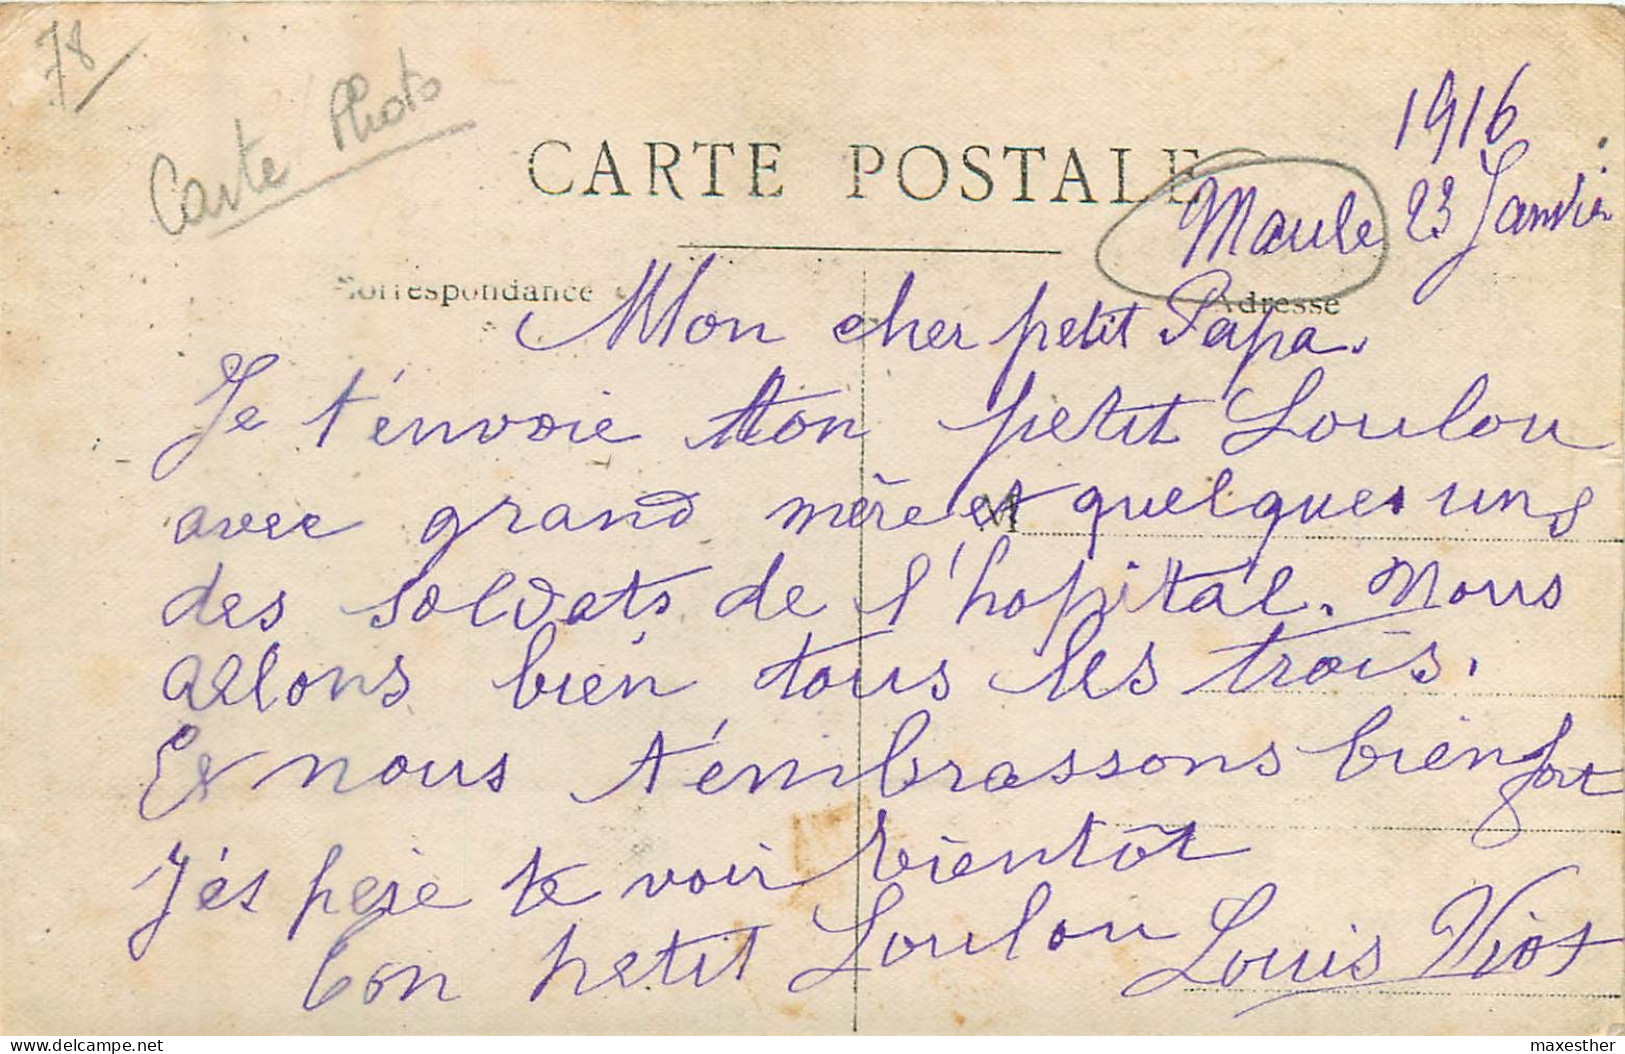 78
Carte Photo
CARTE POSTALE
1916
Maule 23 Janvier
Correspondance
Adresse
Mon cher petit Papa.
Je t'envoie ton petit Loulou
avec grand mère et quelques uns
M
des soldats de l'hopital. Nous
allons bien tous les trois.
Et nous t'embrassons bien fort
J'éspère te voir bientôt
Ton petit Loulou Louis Viot
delcampe.net
maxesther